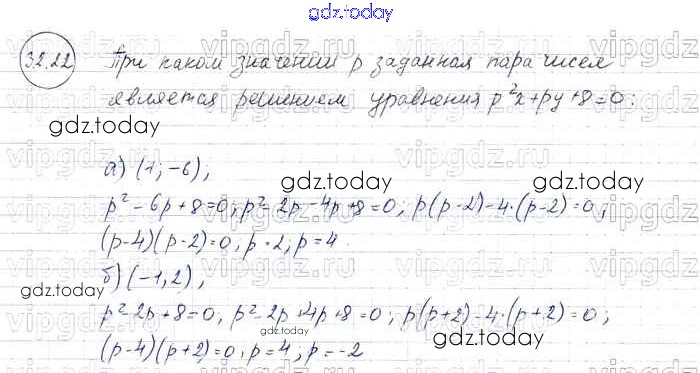 gdz.today
32.22 При каком значении p заданная пара чисел
является решением уравнения p²x+py+8=0:
gdz.today
а) (1; -6);
gdz.today gdz.today
p²-6p+8=0; p²-2p-4p+8=0; p(p-2)-4·(p-2)=0;
(p-4)(p-2)=0, p=2; p=4.
б) (-1, 2),
gdz.today
p²-2p+8=0, p²-2p+4p+8=0; p(p+2)-4·(p+2)=0;
gdz.today
(p-4)(p+2)=0, p=4; p=-2